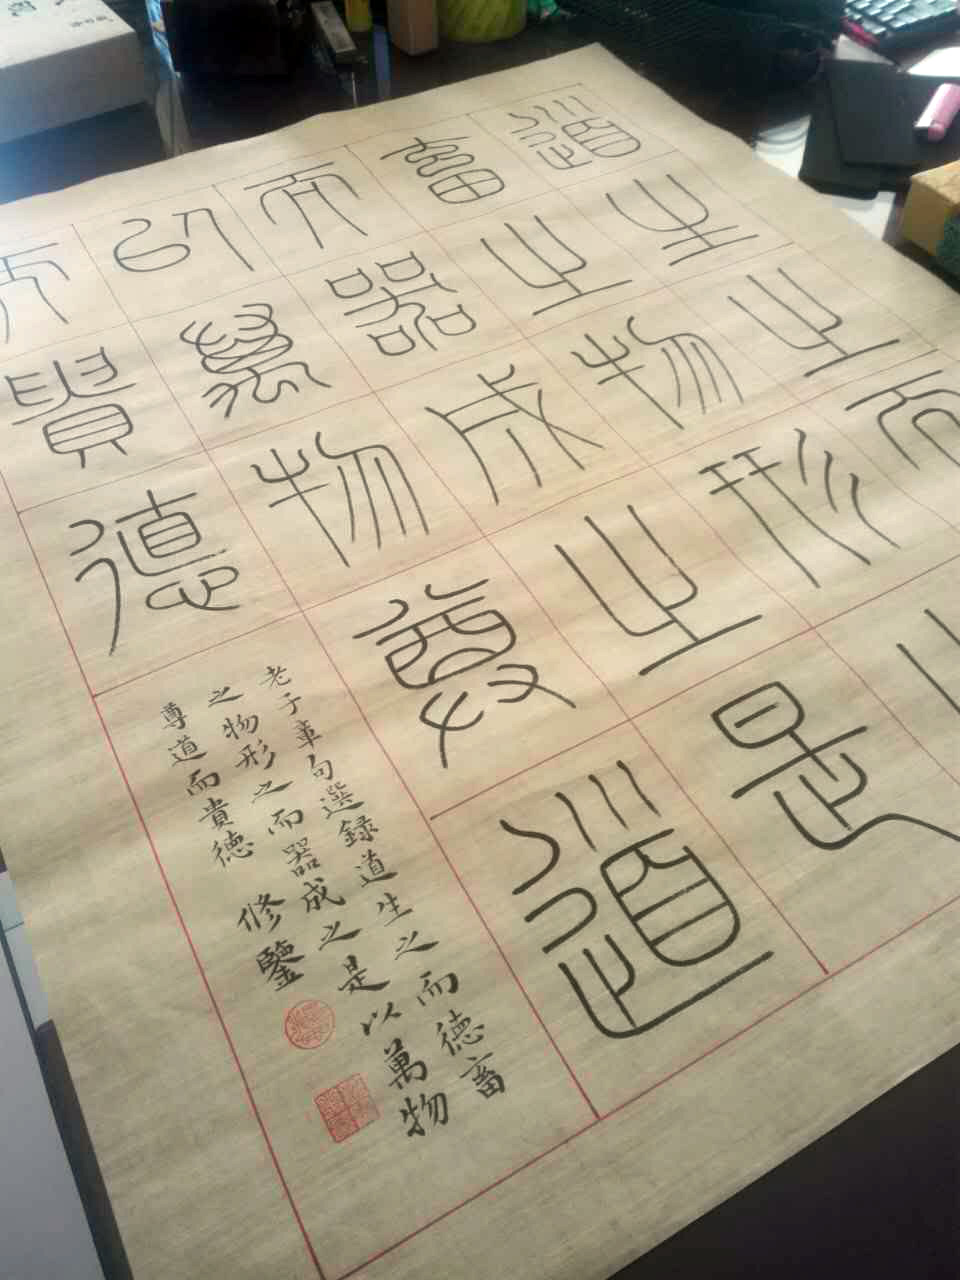 道生之而
畜之物形
而器成之是
以萬物尊道
而貴德
老子章句選録道生之而德畜
之物形之而器成之是以萬物
尊道而貴德 修鑒